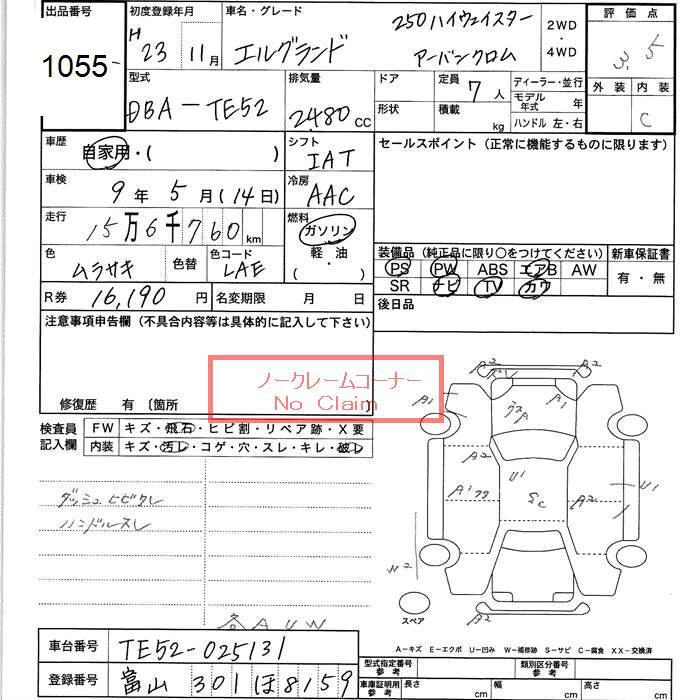 出品番号 初度登録年月 車名・グレード 250ハイウェイスター 2WD・4WD 評価点
1055 H 23 11月 エルグランド アーバンクロム 3.5
型式 排気量 ドア 定員 7人 ディーラー・並行 外装 内装
DBA-TE52 2480 cc 形状 積載 kg モデル年式 年 C
ハンドル 左・右
車歴 自家用・( ) シフト IAT セールスポイント (正常に機能するものに限ります)
車検 9年 5月 (14日) 冷房 AAC
走行 15万6千760 km 燃料 ガソリン
軽・油
・( )
色 ムラサキ 色替 色コード LAE 装備品 (純正品に限り○をつけてください) 新車保証書
PS PW ABS エアB AW 有・無
R券 16,190円 名変期限 月 日 SR ナビ TV カワ
後日品
注意事項申告欄 (不具合内容等は具体的に記入して下さい)
ノークレームコーナー
No Claim
修復歴 有 〔箇所 〕
検査員記入欄 FW キズ・飛石・ヒビ割・リペア跡・X要
内装 キズ・汚レ・コゲ・穴・スレ・キレ・破レ
ダッシュヒビワレ
ハンドルスレ
各AUW
A2
A1 A1
A2 U1 U1
A1 A2
W2
A2
スペア
A-キズ E-エクボ U-凹み W-補修跡 S-サビ C-腐食 XX-交換済
車台番号 TE52-025131
登録番号 富山 301 ほ 8159
型式指定番号 参考 類別区分番号 参考
車庫証明用 参考 長さ cm 幅 cm 高さ cm